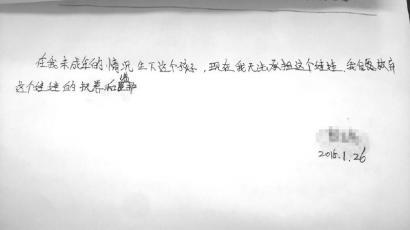 在我未成年的情况生下这个孩子,现在我无法承担这个娃娃,我自愿放弃
这个娃娃的抚养和监护
2015.1.26